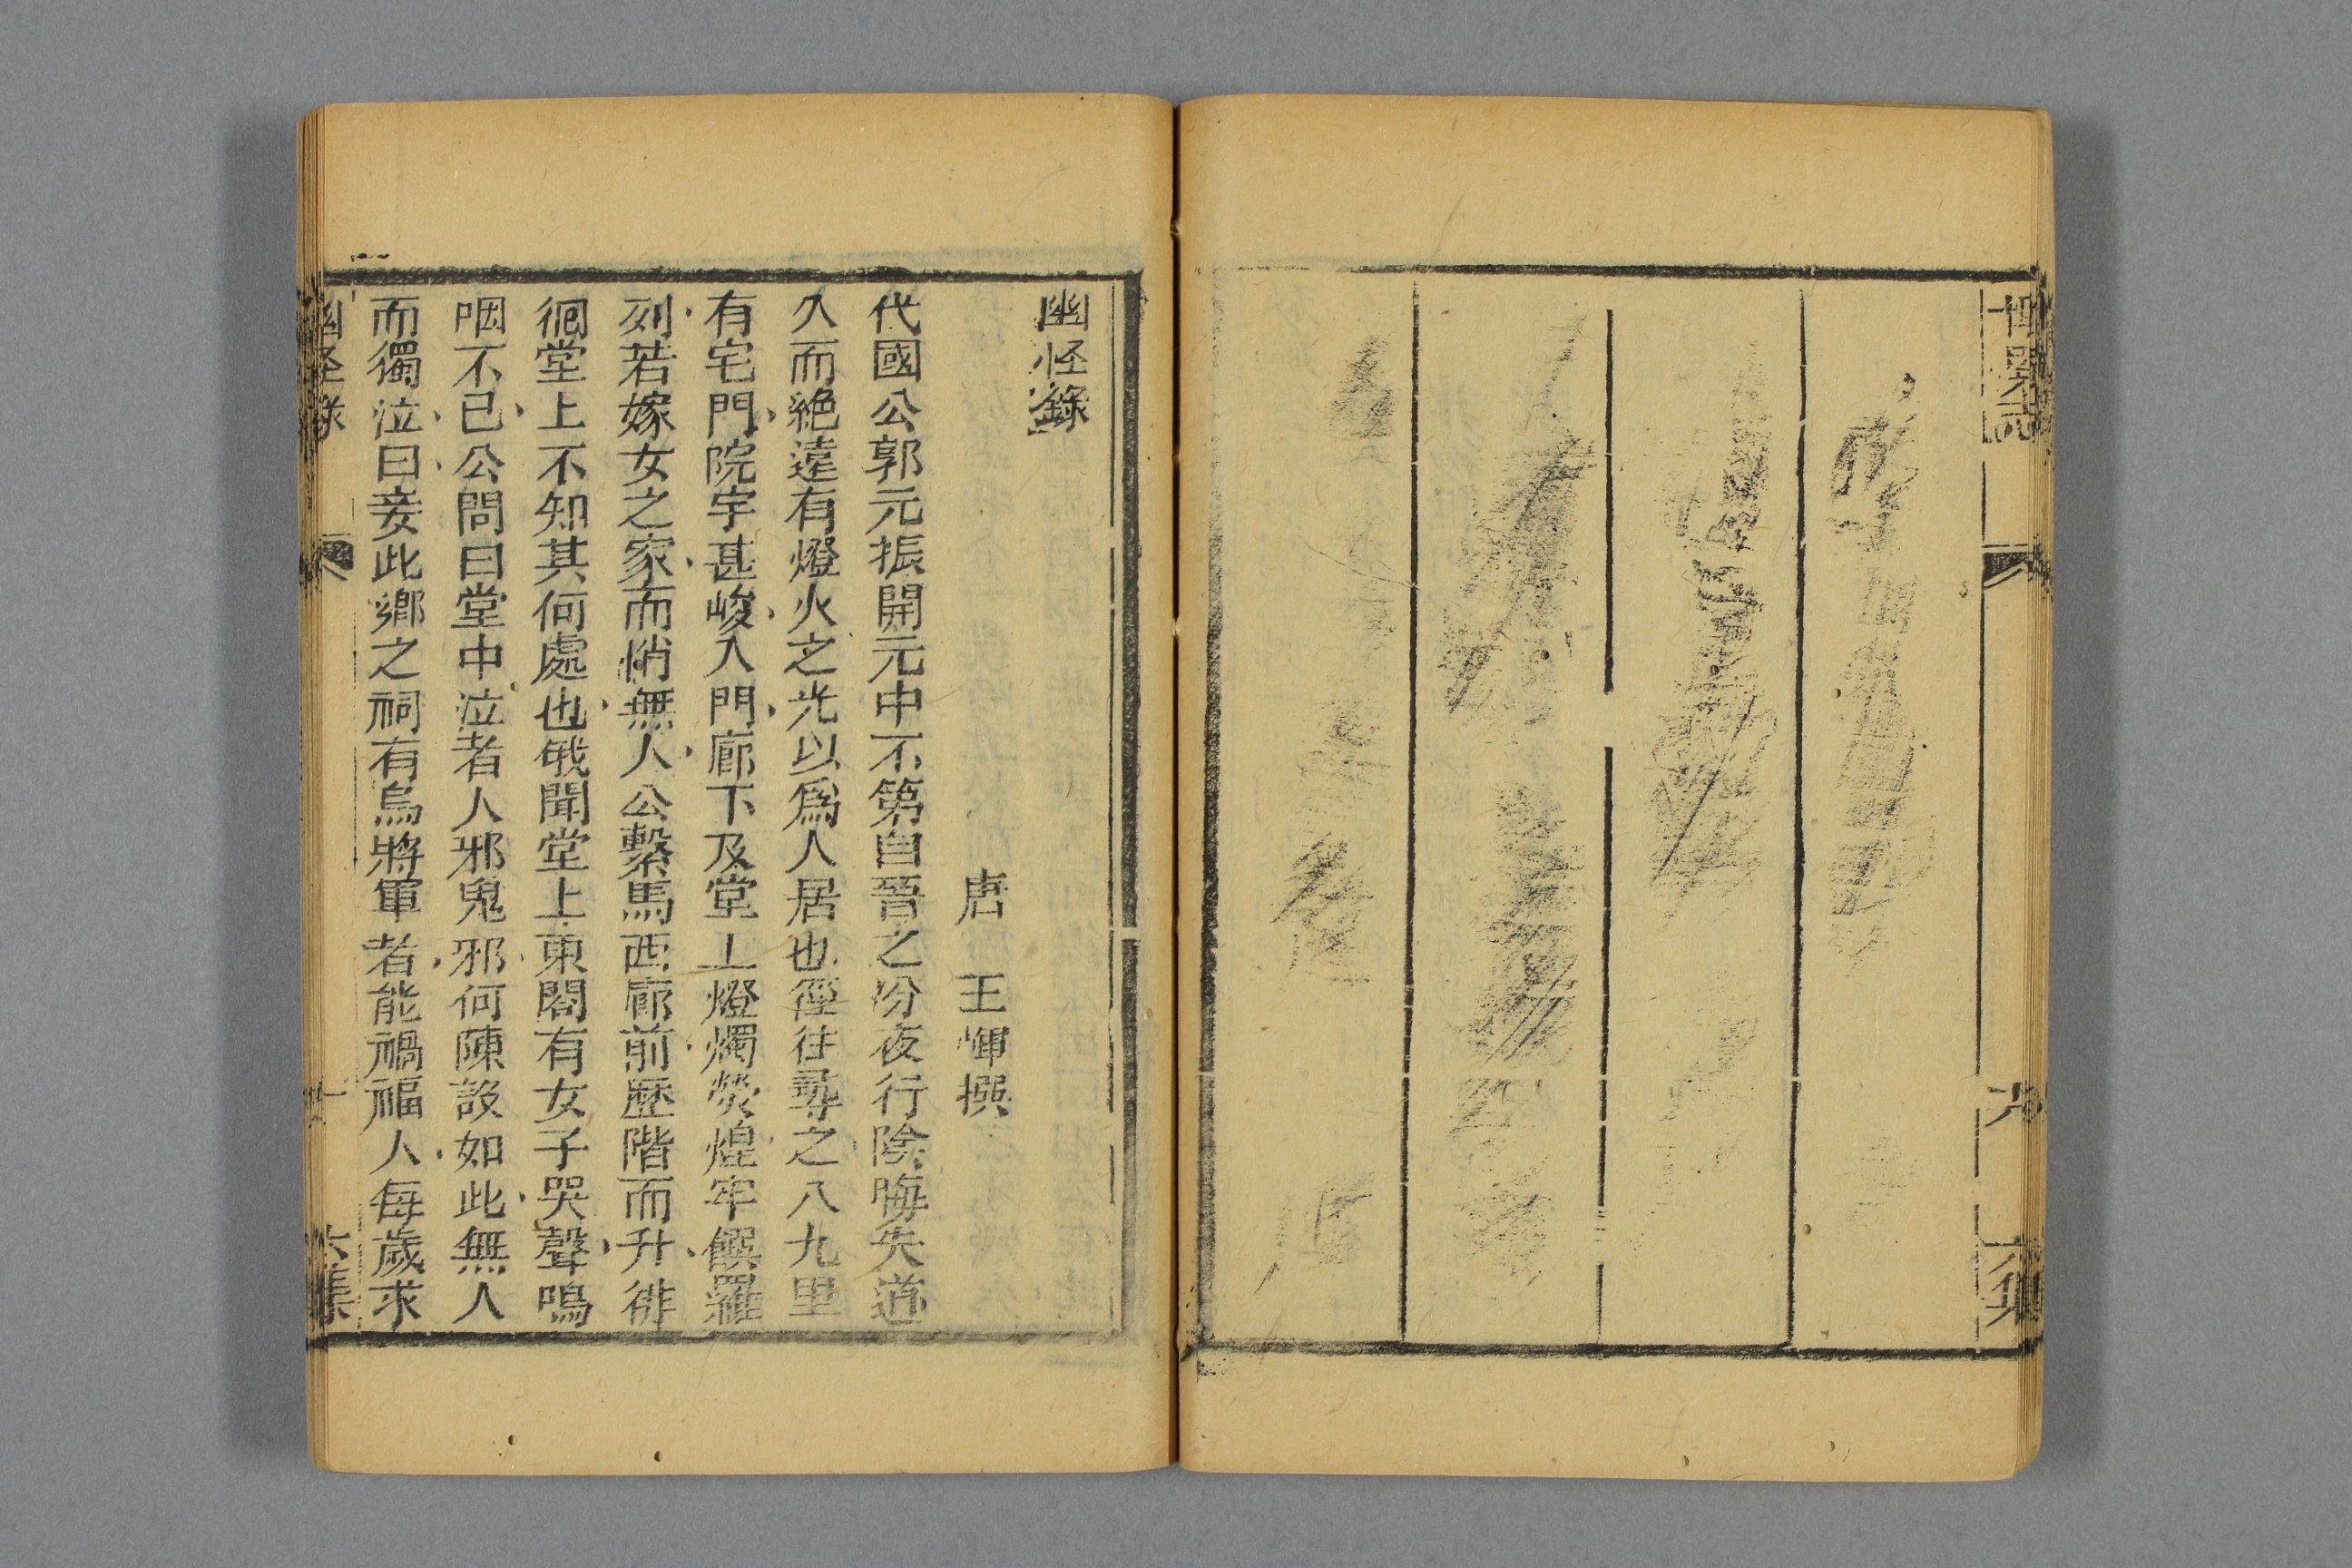 博異志
九
六集
幽怪錄
唐 王惲撰
代國公郭元振開元中不第自晉之汾夜行陰晦失道
久而絶遠有燈火之光以爲人居也徑往尋之八九里
有宅門院宇甚峻入門廊下及堂上燈燭熒煌牢饌羅
列若嫁女之家而悄無人公繫馬西廊前歷階而升徘
徊堂上不知其何處也俄聞堂上東閣有女子哭聲嗚
咽不已公問曰堂中泣者人邪鬼邪何陳設如此無人
而獨泣曰妾此鄉之祠有烏將軍者能禍福人每歲求
幽怪錄
一
六集